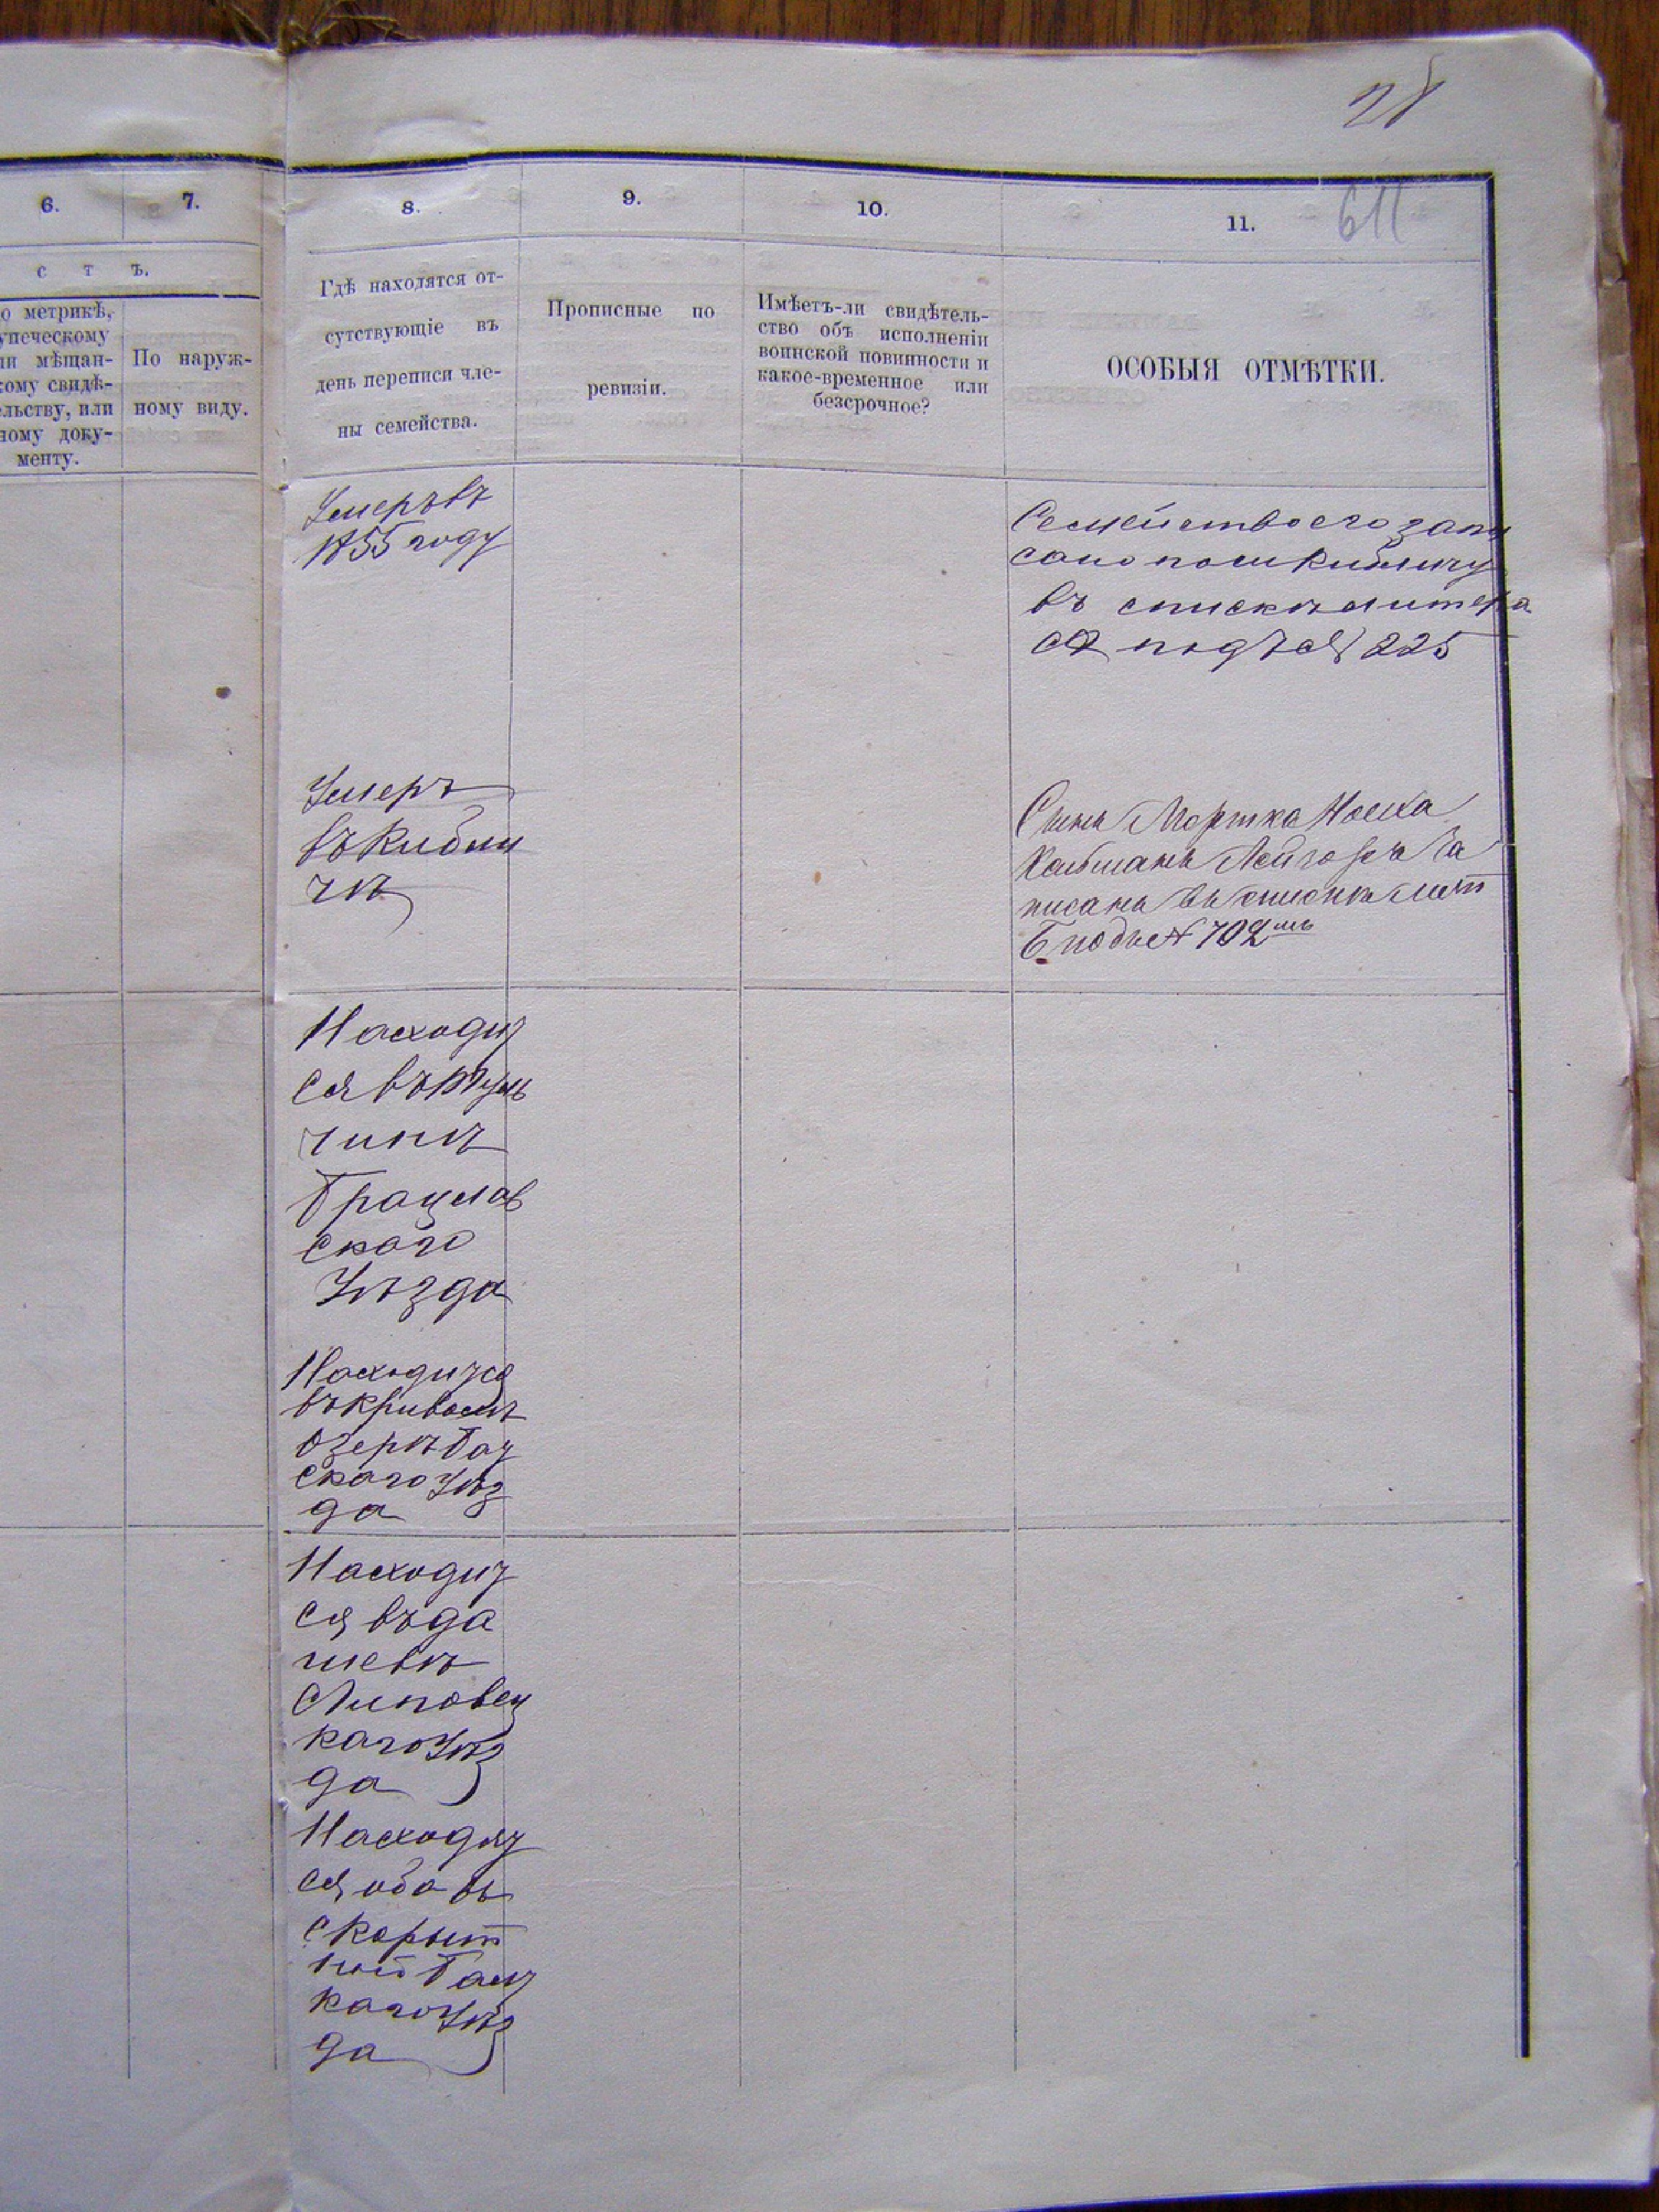 28
611
6.
7.
8.
9.
10.
11.
с т ъ.
о метрикѣ,
упеческому
ли мѣщан-
кому свидѣ-
ельству, или
ному доку-
менту.
По наруж-
ному виду.
Гдѣ находятся от-
сутствующіе въ
день переписи чле-
ны семейства.
Прописные по
ревизіи.
Имѣетъ-ли свидѣтель-
ство объ исполненіи
воинской повинности и
какое-временное или
безсрочное?
ОСОБЫЯ ОТМѢТКИ.
Умеръ въ
1855 году
Семейство его запи
сано по м Кибличу
въ спискѣ литера
А подъ № 225
Умеръ
въ Кибли
чѣ
Сынъ Мортка Мошка
Кальманъ Лейзоръ за
писанъ въ списокъ лит
Б подъ № 702
Находит
ся въ Туль
чинѣ
Брацлав
скаго
Уѣзда
Находится
въ Кривомъ
Озерѣ Балт
скаго Уѣз
да
Находит
ся въ Да
шевѣ
Липовец
каго Уѣз
да
Находят
ся оба въ
каго Уѣз
да